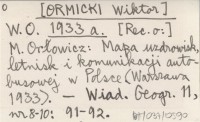 o [ORMICKI Wiktor]
W.O. 1933 a. [Rec. o:]
M. Orłowicz: Mapa uzdrowisk,
letnisk i komunikacji auto-
busowej w Polsce (Warszawa
1933). — Wiad. Geogr. 11,
nr 8-10: 91-92.